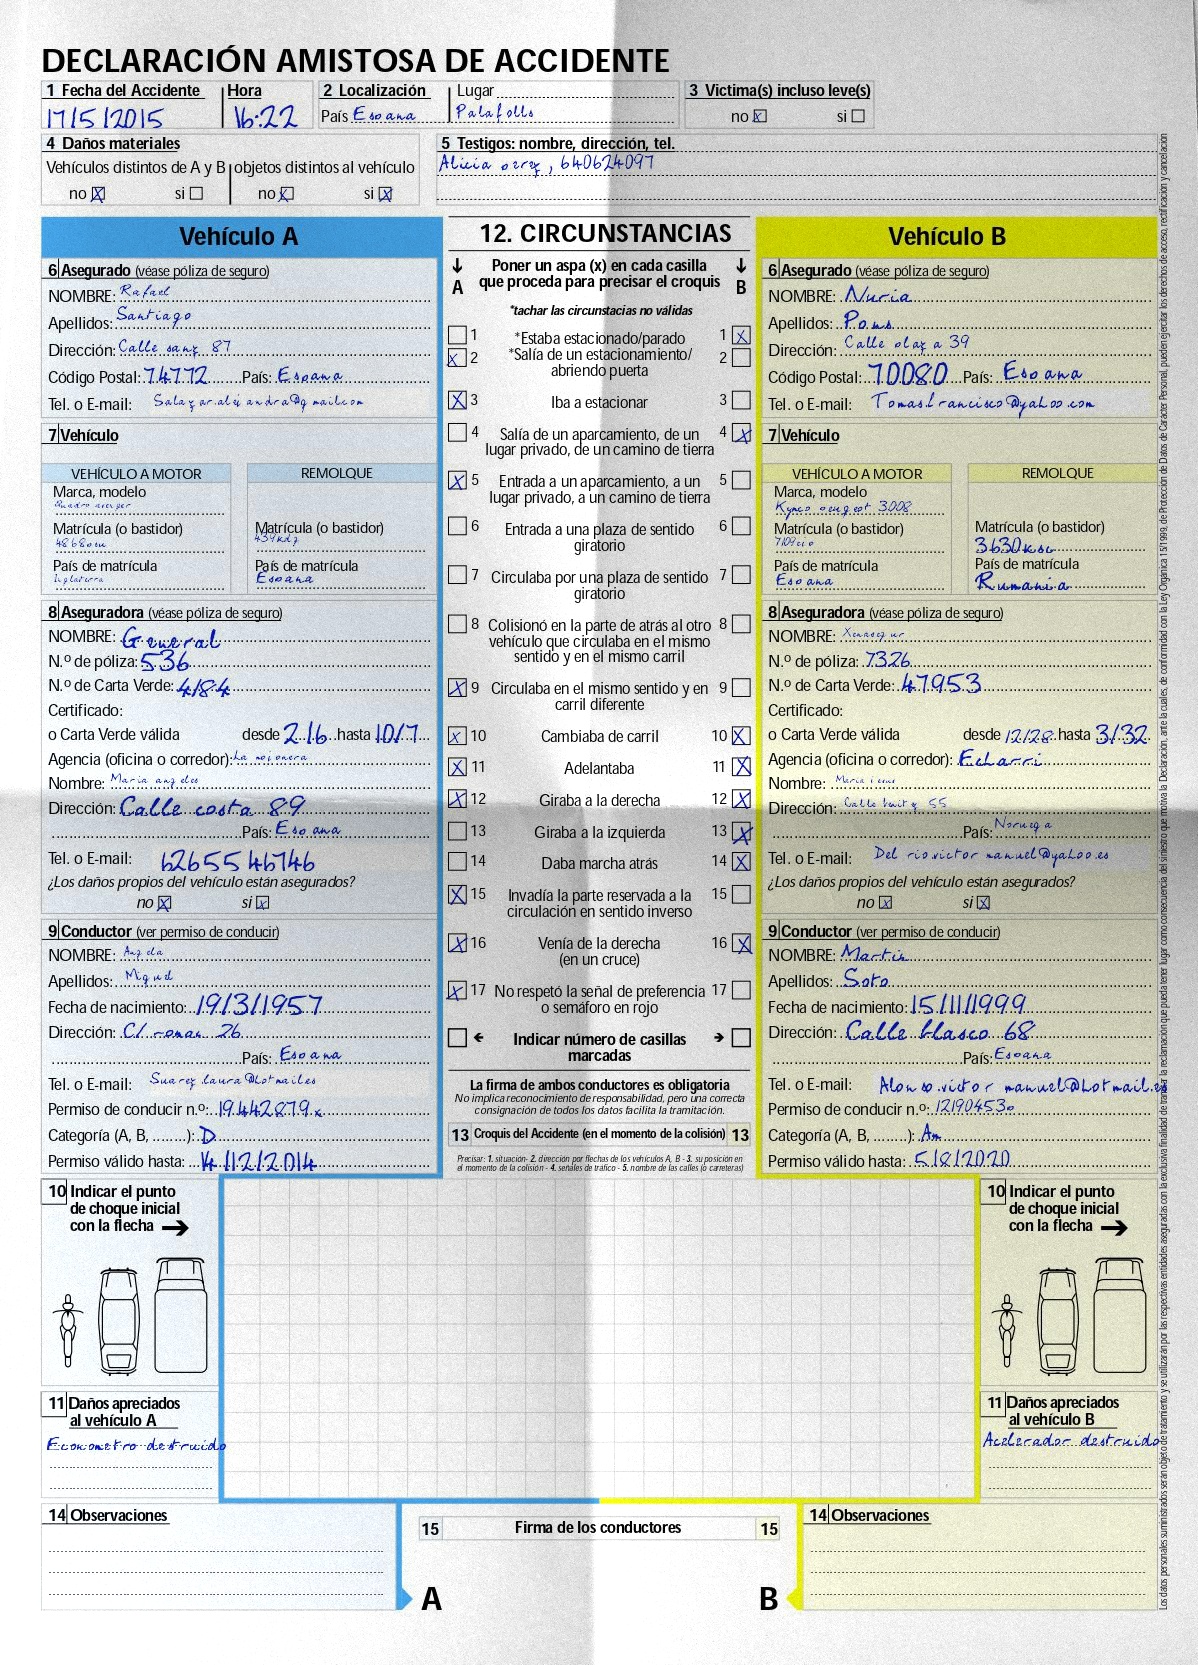 DECLARACIÓN AMISTOSA DE ACCIDENTE
1 Fecha del Accidente Hora 2 Localización Lugar 3 Victima(s) incluso leve(s)
17/5/2015 16:22 País Espana Palafolls no X si
4 Daños materiales
Vehículos distintos de A y B objetos distintos al vehículo
no X si no X si X
5 Testigos: nombre, dirección, tel.
Alicia perez, 640624097
Vehículo A
6 Asegurado (véase póliza de seguro)
NOMBRE: Rafael
Apellidos: Santiago
Dirección: Calle sanz 87
Código Postal: 74772 País: Espana
Tel. o E-mail: Salazar.alejandra@gmail.com
7 Vehículo
VEHÍCULO A MOTOR REMOLQUE
Marca, modelo
Matrícula (o bastidor) Matrícula (o bastidor)
País de matrícula País de matrícula
Inglaterra Espana
8 Aseguradora (véase póliza de seguro)
NOMBRE: General
N.º de póliza: 536
N.º de Carta Verde: 4184
Certificado:
o Carta Verde válida desde 2/6 hasta 10/7
Agencia (oficina o corredor): La mojonera
Nombre: Maria angeles
Dirección: Calle costa 89
País: Espana
Tel. o E-mail: 6265546746
¿Los daños propios del vehículo están asegurados?
no X si X
9 Conductor (ver permiso de conducir)
NOMBRE: Angela
Apellidos: Miguel
Fecha de nacimiento: 19/3/1957
Dirección: C/ roman 26
País: Espana
Tel. o E-mail: Suarez.laura@hotmail.es
Permiso de conducir n.º: 19442879x
Categoría (A, B, ........): D
Permiso válido hasta: 14/12/2014
12. CIRCUNSTANCIAS
A Poner un aspa (x) en cada casilla que proceda para precisar el croquis B
*tachar las circunstacias no válidas
1 *Estaba estacionado/parado 1 X
X 2 *Salía de un estacionamiento/ 2
abriendo puerta
X 3 Iba a estacionar 3
4 Salía de un aparcamiento, de un 4 X
lugar privado, de un camino de tierra
X 5 Entrada a un aparcamiento, a un 5
lugar privado, a un camino de tierra
6 Entrada a una plaza de sentido 6
giratorio
7 Circulaba por una plaza de sentido 7
giratorio
8 Colisionó en la parte de atrás al otro 8
vehículo que circulaba en el mismo
sentido y en el mismo carril
X 9 Circulaba en el mismo sentido y en 9
carril diferente
X 10 Cambiaba de carril 10 X
X 11 Adelantaba 11 X
X 12 Giraba a la derecha 12 X
13 Giraba a la izquierda 13 X
14 Daba marcha atrás 14 X
X 15 Invadía la parte reservada a la 15
circulación en sentido inverso
X 16 Venía de la derecha 16 X
(en un cruce)
X 17 No respetó la señal de preferencia 17
o semáforo en rojo
Indicar número de casillas
marcadas
La firma de ambos conductores es obligatoria
No implica reconocimiento de responsabilidad, pero una correcta
consignación de todos los datos facilita la tramitación.
13 Croquis del Accidente (en el momento de la colisión) 13
Precisar: 1. situación- 2. dirección por flechas de los vehículos A, B - 3. su posición en
el momento de la colisión - 4. señales de tráfico - 5. nombre de las calles (o carreteras)
Vehículo B
6 Asegurado (véase póliza de seguro)
NOMBRE: Nuria
Apellidos: Pons
Dirección: Calle plaza 39
Código Postal: 70080 País: Espana
Tel. o E-mail: Tomas.francisco@yahoo.com
7 Vehículo
VEHÍCULO A MOTOR REMOLQUE
Marca, modelo
Kymco peugeot 3008
Matrícula (o bastidor) Matrícula (o bastidor)
3630ksc
País de matrícula País de matrícula
Espana Rumania
8 Aseguradora (véase póliza de seguro)
NOMBRE:
N.º de póliza: 7326
N.º de Carta Verde: 47953
Certificado:
o Carta Verde válida desde 12/28 hasta 3/32
Agencia (oficina o corredor): Echarri
Nombre: Maria
Dirección: Calle 55
País: Noruega
Tel. o E-mail: Del rio.victor manuel@yahoo.es
¿Los daños propios del vehículo están asegurados?
no X si X
9 Conductor (ver permiso de conducir)
NOMBRE: Martin
Apellidos: Soto
Fecha de nacimiento: 15/11/1999
Dirección: Calle blasco 68
País: Espana
Tel. o E-mail: Alonso.victor manuel@hotmail.es
Permiso de conducir n.º: 12190453p
Categoría (A, B, ........): Am
Permiso válido hasta: 5/8/2020
10 Indicar el punto
de choque inicial
con la flecha
11 Daños apreciados
al vehículo A
Econometro destruido
10 Indicar el punto
de choque inicial
con la flecha
11 Daños apreciados
al vehículo B
Acelerador destruido
14 Observaciones
15 Firma de los conductores 15
A B
14 Observaciones